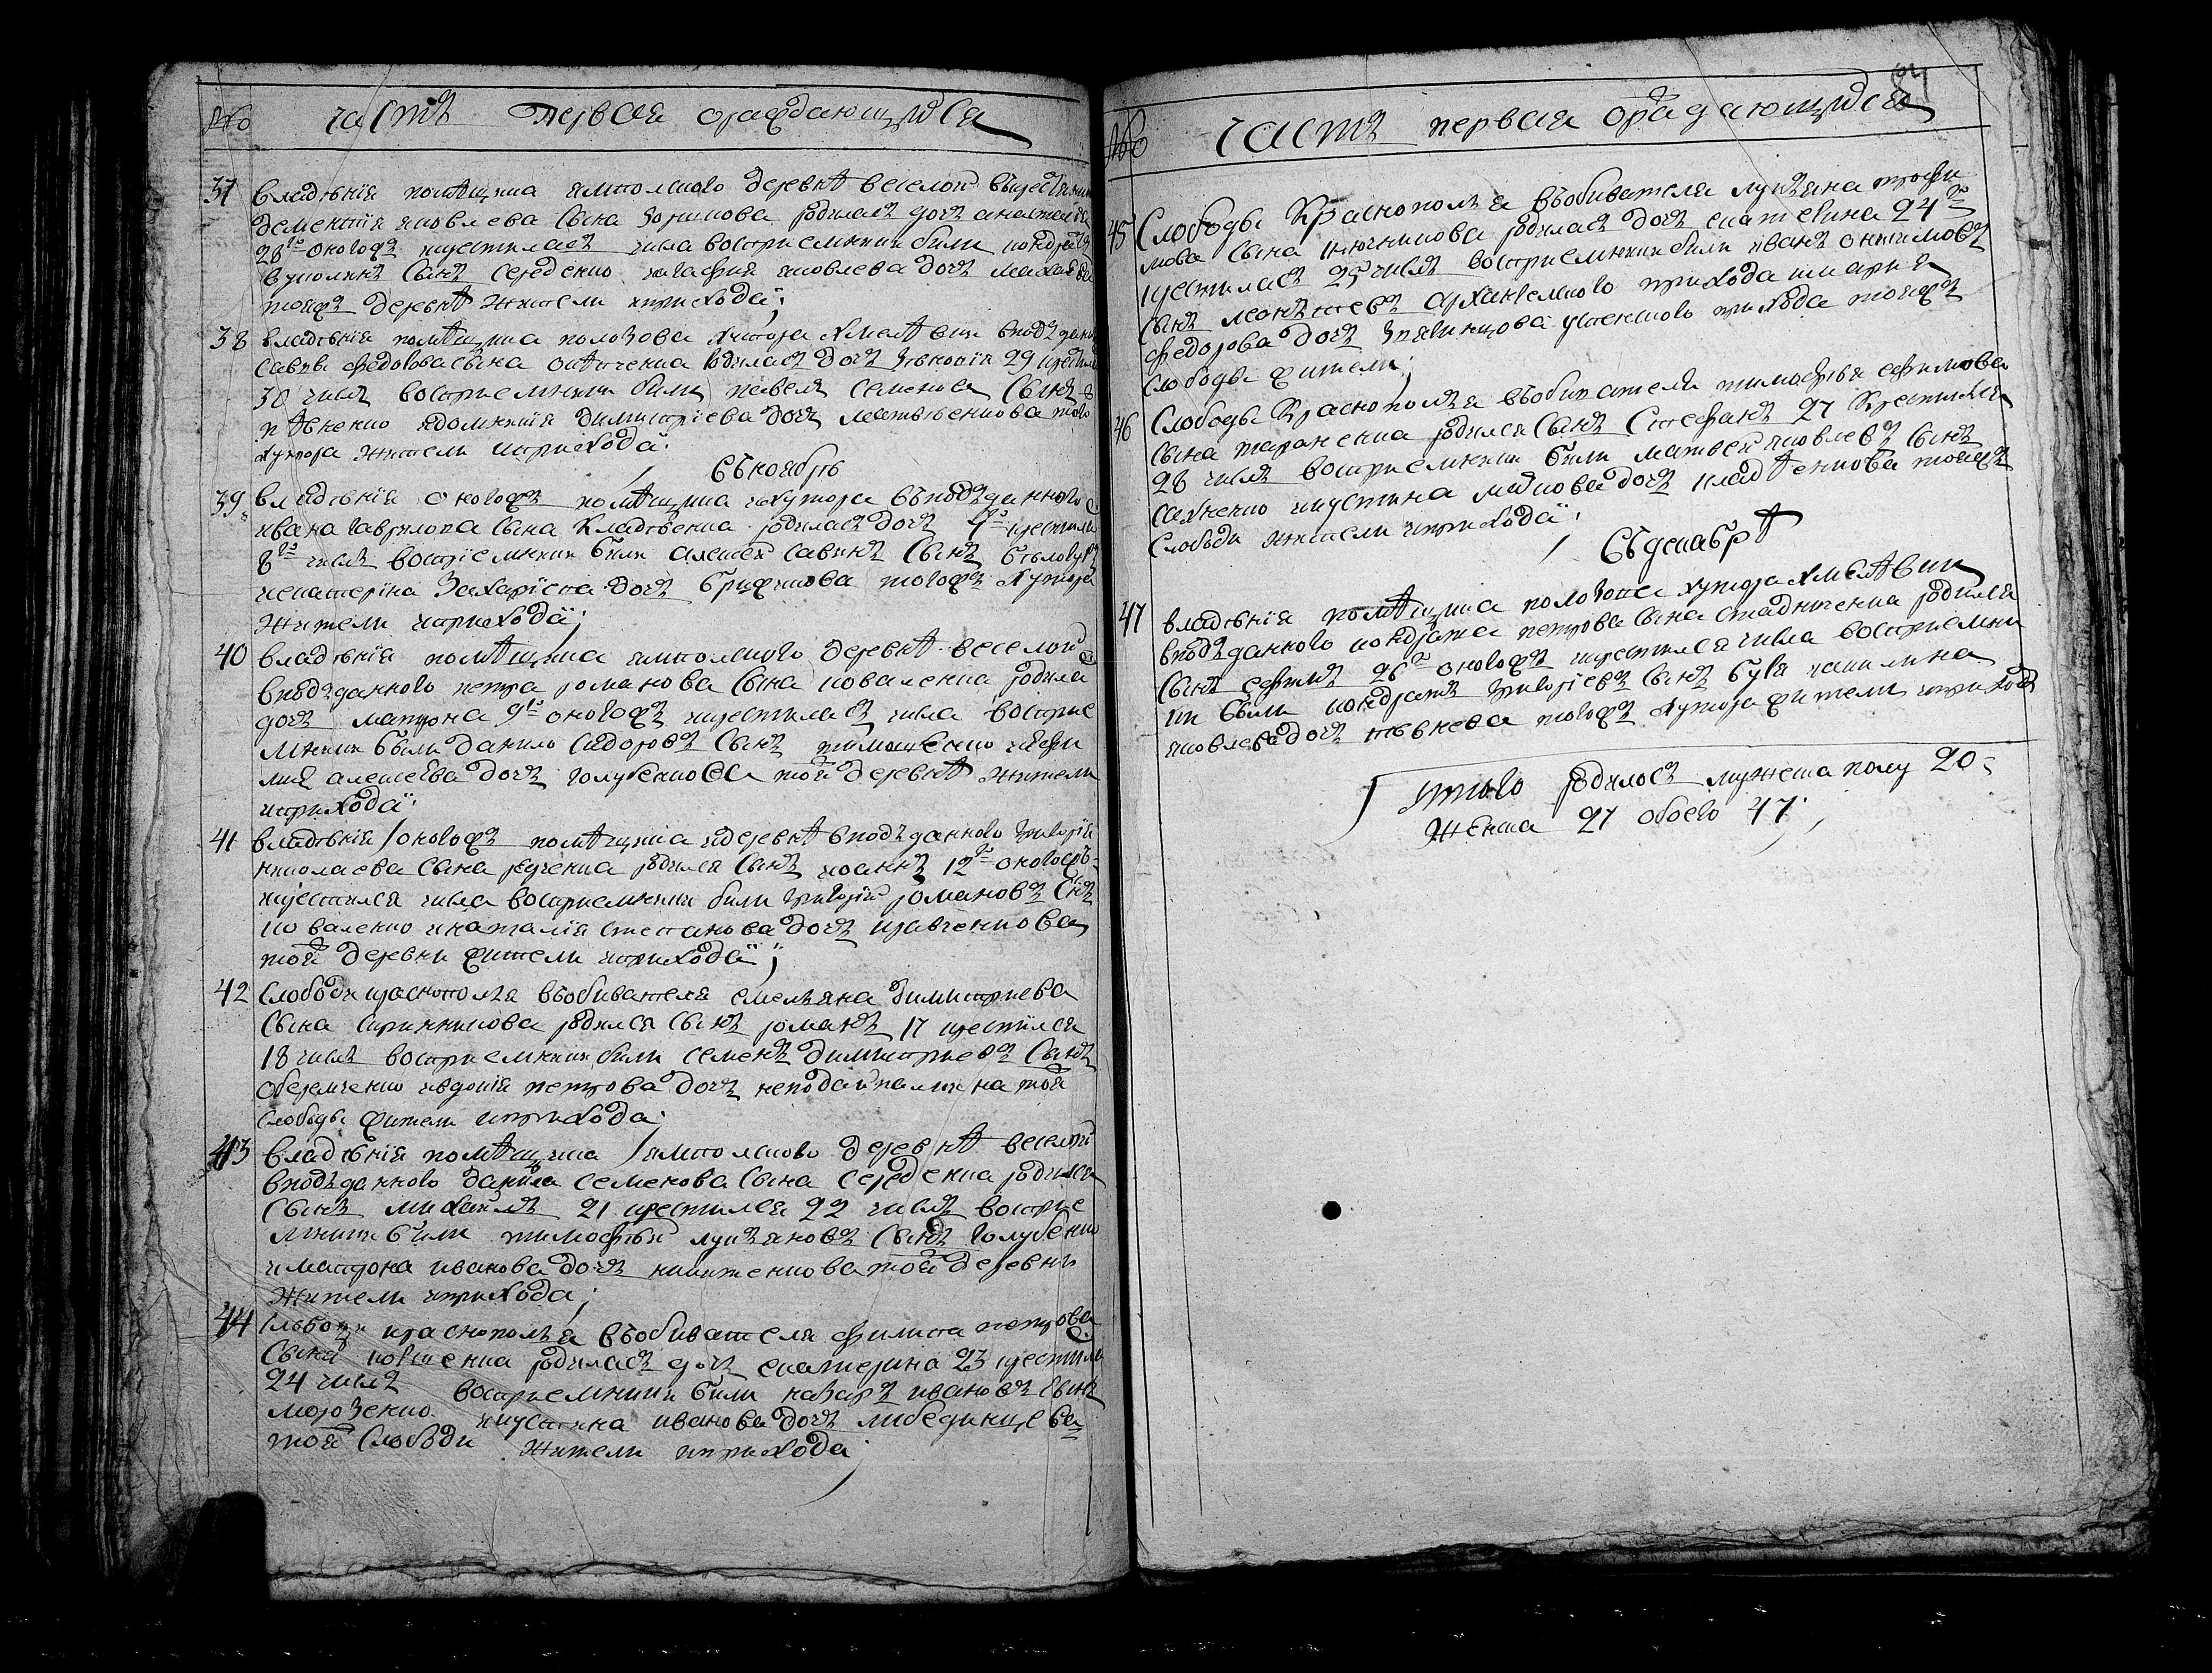 № часть первая ораждающихся
37 владѣнія помѣщика ямполского деревнѣ веселой
дементія яковлева сына зорикова родилась дочь анастасія
28го оногожъ крестилась числа восприемники били кондратъ
сынъ середенко яковлева дочь
тояжъ деревнѣ жители и прихода;
38 владѣнія помѣщика полозова хутора хмелѣвки вподъданого
савы федорова сына родилась дочь зѣновія 29 крести
30 числа восприемники били павелъ семенова сынъ
ѣвненко идомникія димитріева дочь матвѣенкова того
хутора жители и прихода:
въ ноябрь
39 владѣнія оногожъ помѣщика и хутора въподъданного
ивана гаврилова сына кладѣенка родилась дочь 7го крестила
8го числа воспріемники били алексей савинъ сынъ бѣловусъ
иекатеріна захаріева дочь брижкова тогожъ хутора
жители и прихода;
40 владѣнія помѣщика ямполского деревнѣ веселой
вподъданного петра романова сына коваленка родила
дочь матрона 9го оногожъ икрестиласъ числа восприе
мники били данило сидоровъ сынъ тимошенко иефи
мия алексѣева дочь голубенкова той деревнѣ жители
и прихода:
41 владѣнія оногожъ помѣщика идеревнѣ вподъданного григорія
николаева сына редченка родился сынъ иоаннъ 12го оногожъ
крестился числа восприемники били григорій романовъ снъ
коваленко инаталія степанова дочь кравченкова
той деревни жители и прихода;
42 слободи краснополья въобивателя емельяна димитриева
сына скринникова родился сынъ романъ 17 крестился
18 числа восприемники били семенъ димитриевъ сынъ
оберемченко иевдокія петрова дочь неподайпалихина той
слободы жители и прихода;
43 владѣнія помѣщика ямполского деревнѣ веселой
вподъданного данила семенова сына середенка родился
сынъ михаилъ 21 крестился 22 числа восприе
мники били тимофѣй лукъяновъ сынъ голубенко
иматрона иванова дочь никитенкова той деревни
жители и прихода;
44 слободи краснополья въобивателя филипа петрова
сына родиласъ дочь екатерина 23 крестила
24 числа восприемники били назаръ ивановъ сынъ
морозенко иустина иванова дочь либединцева
той слободи жители и прихода;
№ часть первая орадающихся
45 Слободы Краснополья въобивателя лукъяна трофи
мова сына ключникова родилась дочь екатерина 24го
крестилась 25 числа восприемники били иванъ онтимовъ
сынъ леонътевъ архангелского прихода имария
федорова дочь успенского прихода тояжъ
слободы жители;
46 Слободы Краснополья въобивателя тимофѣя ефимова
сына тараненка родился сынъ Стефанъ 27 Крестился
28 числа восприемники били матвей яковлевъ сынъ
сахненко иустина маркова дочь кладѣенкова тояжъ
слободи жители и прихода;
въ декабрѣ
47 владѣнія помѣщика полозова хутора хмелѣвки
вподъданного кондрата петрова сына стадниченка родился
сынъ 26го оногожъ икрестился числа восприемни
ки били кондратъ григоріевъ сынъ
яковлева дочь ѣвнева тогожъ хутора жители и прихода
Итого родилось мужеска полу 20
женска 27 обоего 47;